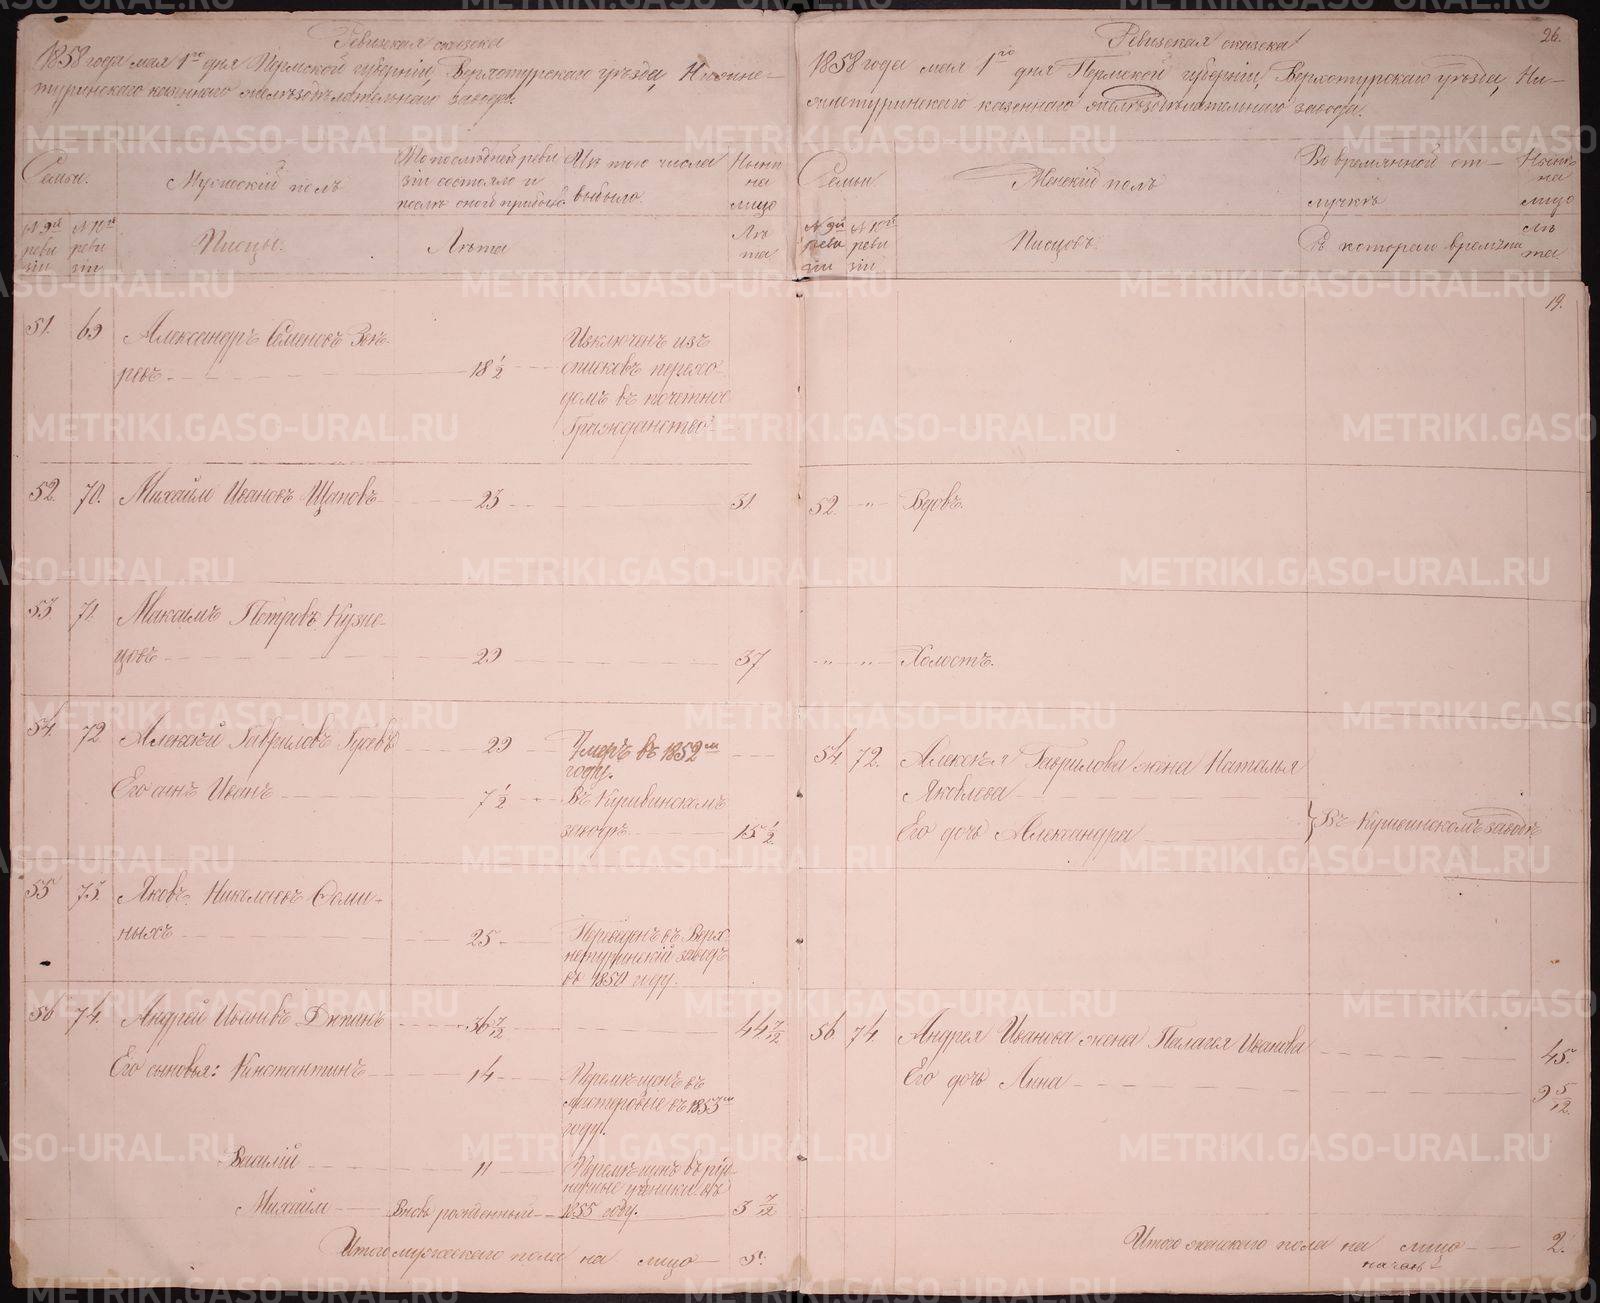 Ревизская сказка
1858 года мая 1го дня Пермской губернiи, Верхотурскаго уѣзда, Нижне-
туринскаго казеннаго желѣзодѣлательнаго завода.
Семьи.
Мужескiй полъ
По последней реви
зiи состояло и
послѣ оной прибыло
Изъ того числа
выбыло.
Нынѣ
на
лицо
№ 9й
реви
зiи
№ 10й
реви
зiи
Писцы.
Лѣта
Лѣ
та
51.
69
Александръ Семеновъ
ревъ
18 1/2
Изключенъ изъ
списковъ перехо
домъ въ почетное
Гражданство
52.
70.
Михайло Ивановъ Щаповъ
23
31.
53
71.
Максимъ Петровъ Кузне-
цовъ
29
37
54.
72
Алексѣй Гавриловъ Гусевъ
29
Умеръ въ 1852м
году.
Его сынъ Иванъ
7 1/2
Въ Кушвинскомъ
заводѣ
15 1/2
55
73.
Яковъ Николаевъ Семи-
ныхъ
25
Переведенъ въ Верх-
нетуринскiй заводъ
въ 1850 году.
56
74.
Андрей Ивановъ
36 7/12
44 7/12
Его сыновья: Константинъ
14
Перемѣщенъ въ
мастеровые въ 1853м
году.
Василiй
11
Перемѣщенъ въ
ученики въ
1855 году.
Михайло
Вновь рожденный
3 7/12
Итого мужескаго пола на лицо
5.
26.
Ревизская сказка
1858 года мая 1го дня Пермской губернiи, Верхотурскаго уѣзда, Ни-
жнетуринскаго казеннаго желѣзодѣлательнаго завода.
Семьи
Женскiй полъ
Во временной от-
лучкѣ
Нынѣ
на
лицо
№ 9й
реви
зiи
№ 10й
реви
зiи
Писцовъ.
Съ котораго времени
Лѣ
та
19.
52.
"
Вдовъ.
"
"
Холостъ.
54.
72.
Алексѣя Гаврилова жена Наталья
Яковлева
Его дочь Александра
Въ Кушвинскомъ заводѣ
56.
74
Андрея Иванова жена Палагея Иванова
45.
Его дочь Анна
9 5/12.
Итого женскаго пола на лицо
2.
METRIKI.GASO-URAL.RU